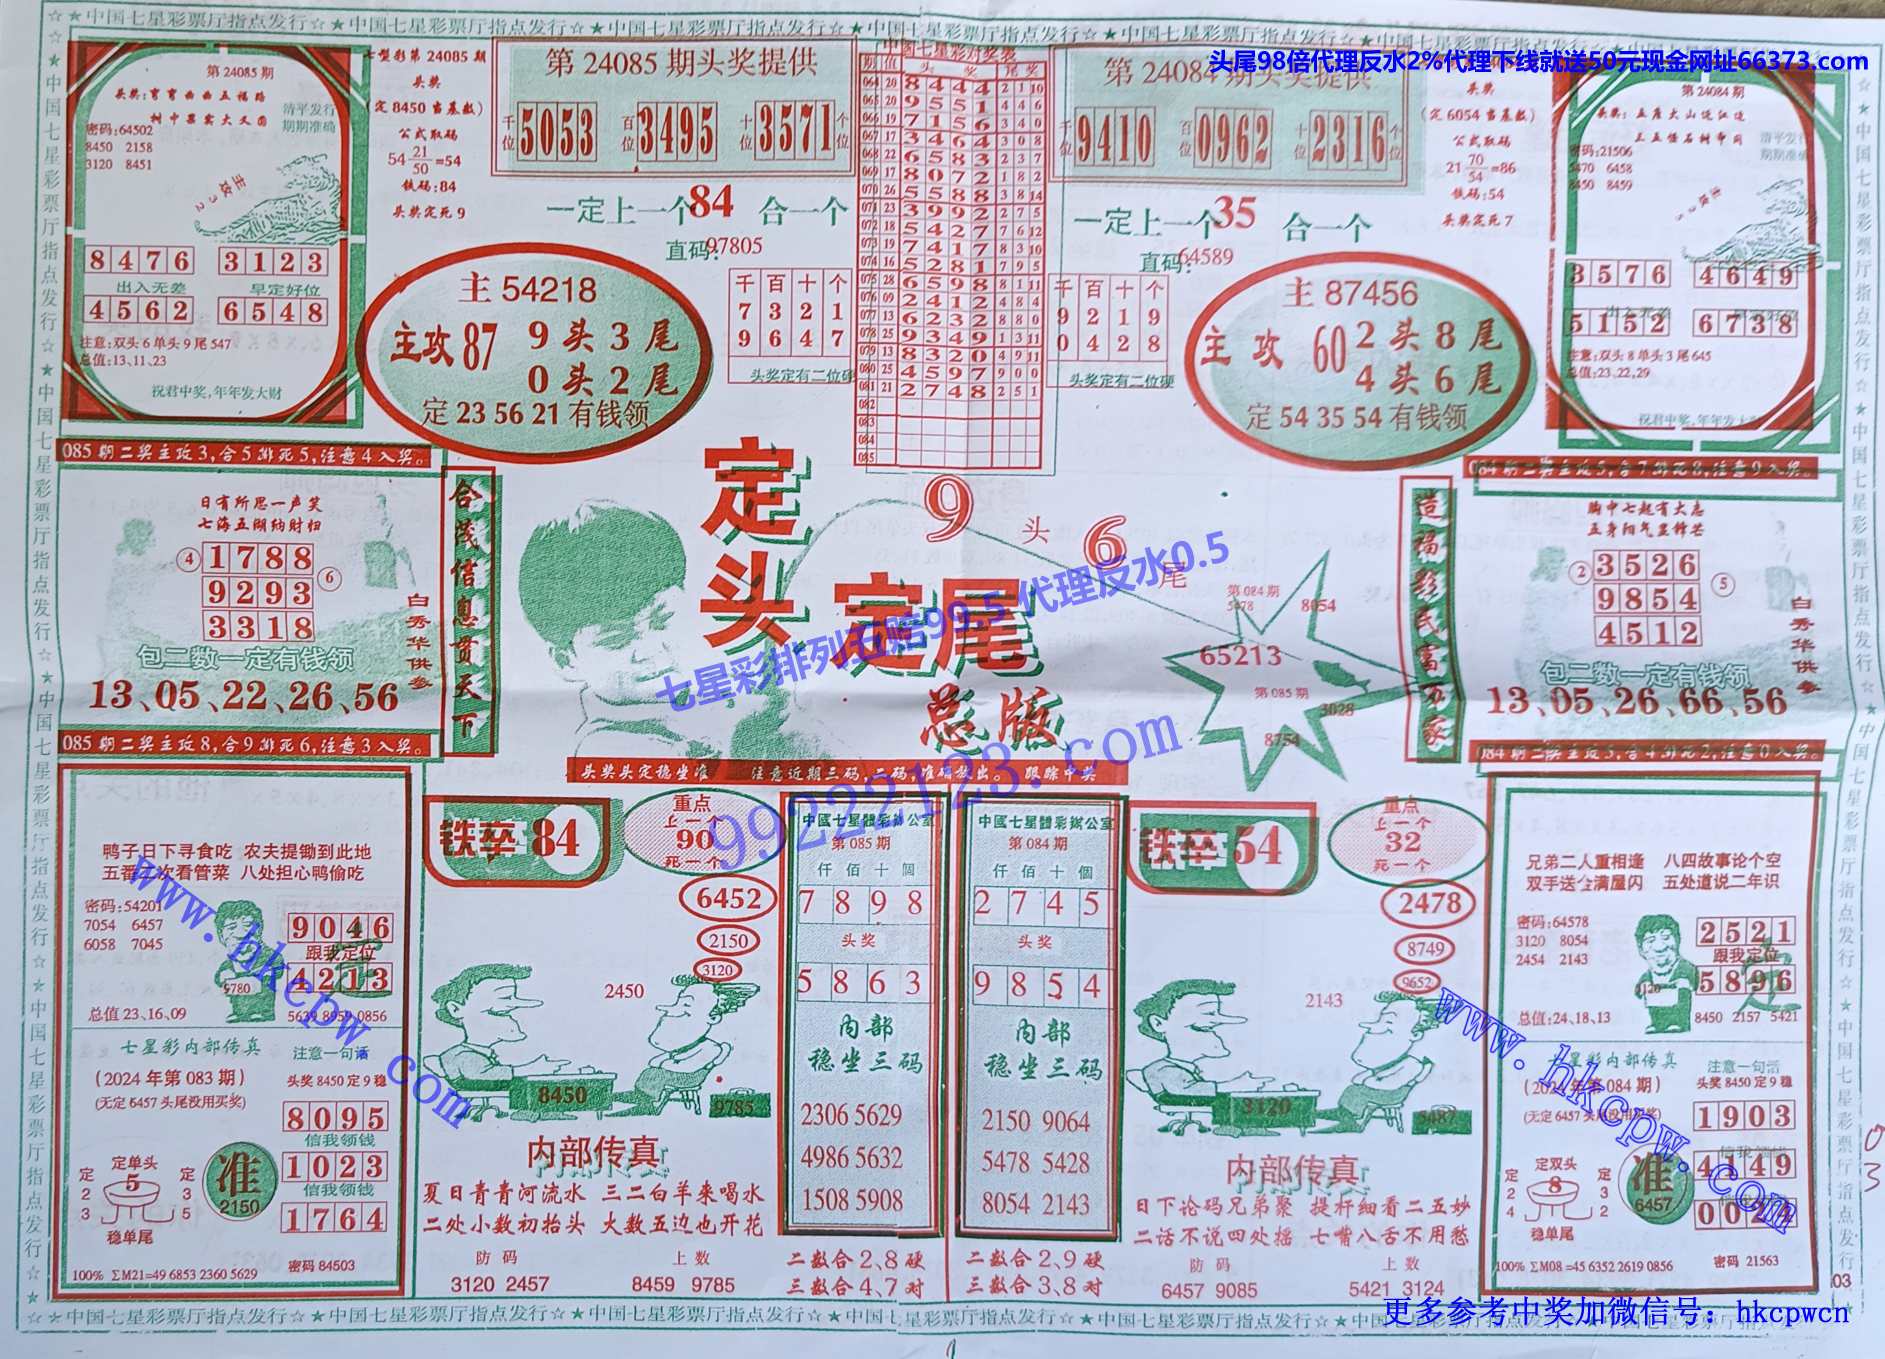 ☆★中国七星彩票厅指点发行☆★中国七星彩票厅指点发行☆★中国七星彩票厅指点发行☆★中国七星彩票厅指点发行
头尾98倍代理反水2%代理下线就送50元现金网址66373.com
第24085期
头奖:弯弯曲曲五福路
树中果实大又圆
清平发行
期期准确
密码:64502
8450 2158
3120 8451
主攻32
8476 3123
出入无差 早定好位
4562 6548
注意:双头6单头9尾547
总值:13,11,23
祝君中奖,年年发大财
七型彩第24085期
头奖
(定8450当基数)
公式取码
54 21/50 =54
铁码:84
头奖定死9
第24085期头奖提供
千位 5053 百位 3495 十位 3571 个位
一定上一个84 合一个
直码:97805
主54218
主攻87 9头3尾
0头2尾
定 23 56 21 有钱领
千百十个
7321
9647
头奖定有二位硬
中国七星彩对奖表
期 值 头奖 尾奖
064 20 8444 2 1 10
065 20 9551 4 4 6
066 19 7156 3 4 0
067 17 3464 3 0 8
068 22 6583 2 3 7
069 17 8072 1 8 2
070 26 5588 3 8 14
071 23 3992 2 7 5
072 18 5427 7 6 12
073 19 7417 8 3 10
074 16 5281 7 9 5
075 28 6598 8 1 11
076 09 2412 4 8 4
077 13 6232 8 8 0
078 25 9349 1 3 11
079 13 8320 4 9 11
080 25 4597 9 0 0
081 21 2748 2 5 1
082
083
084
085
第24084期头奖提供
千位 9410 百位 0962 十位 2316 个位
一定上一个35 合一个
直码:64589
千百十个
9219
0428
头奖定有二位硬
主87456
主攻60 2头8尾
4头6尾
定 54 35 54 有钱领
头奖
(定6054当基数)
公式取码
21 70/54 =86
铁码:54
头奖定死7
第24084期
头奖:五座大山边江边
三五怪石树串间
清平发行
期期准确
密码:21506
5470 6458
8450 8459
3576 4649
5152 6738
注意:双头8单头3尾645
总值:23,22,29
祝君中奖,年年发大财
085期二奖主攻3,合5排死5,注意4入奖。
日有所思一声笑
七海五湖纳财归
④ 1788
9293 ⑥
3318
包二数一定有钱领
13、05、22、26、56
白秀华供参
085期二奖主攻8,合9排死6,注意3入奖。
合茂信息贯天下
定头
定尾
总版
9头6尾
七星彩排列五赔99.5 代理反水0.5
99222123.com
头奖头定稳坐准 注意近期三码,二码,准确放出。 跟踪中奖
第084期
5478 8054
65213
第085期
3028
8754
造福彩民富万家
084期二奖主攻5,合7排死8,注意9入奖。
胸中七起有大志
五身阳气显锋芒
② 3526
9854 ⑤
4512
包二数一定有钱领
13、05、26、66、56
白秀华供参
084期二奖主攻5,合4排死2,注意0入奖。
鸭子日下寻食吃 农夫提锄到此地
五番二次看管菜 八处担心鸭偷吃
密码:54201
7054 6457
6058 7045
9780
9046
跟我定位
4213
总值23、16、09
5639 8959 0856
七星彩内部传真
(2024年第083期)
(无定6457头尾没用买奖)
注意一句话
头奖8450定9稳
8095
信我领钱
1023
信我领钱
1764
定单头
5
定23 定35
稳单尾
准
2150
100% ∑M21=49 6853 2360 5629
密码84503
铁卒84
重点
上一个
90
死一个
6452
2150
3120
2450
8450
9785
内部传真
夏日青青河流水 三二白羊来喝水
二处小数初抬头 大数五边也开花
防码 上数
3120 2457 8459 9785
中國七星體彩辦公室
第085期
仟佰十個
7898
头奖
5863
内部
稳坐三码
2306 5629
4986 5632
1508 5908
二数合2、8硬
三数合4、7对
中國七星體彩辦公室
第084期
仟佰十個
2745
头奖
9854
内部
稳坐三码
2150 9064
5478 5428
8054 2143
二数合2、9硬
三数合3、8对
铁卒54
重点
上一个
32
死一个
2478
8749
9652
2143
3120
5487
内部传真
日下论码兄弟聚 提杆细看二五妙
二话不说四处摇 七嘴八舌不用愁
防码 上数
6457 9085 5421 3124
兄弟二人重相逢 八四故事论个空
双手送金满屋闪 五处道说二年识
密码:64578
3120 8054
2454 2143
2521
跟我定位
5896
总值:24、18、13
8450 2157 5421
七星彩内部传真
(2024年第084期)
(无定6457头尾没用买奖)
注意一句话
头奖8450定9稳
1903
信我领钱
4149
信我领钱
定双头
8
定24 定32
稳单尾
准
6457
100% ∑M08=45 6352 2619 0856
密码 21563
03
www.hkcpw.com
www.hkcpw.com
更多参考中奖加微信号：hkcpwcn
☆★中国七星彩票厅指点发行☆★中国七星彩票厅指点发行☆★中国七星彩票厅指点发行☆★中国七星彩票厅指点发行